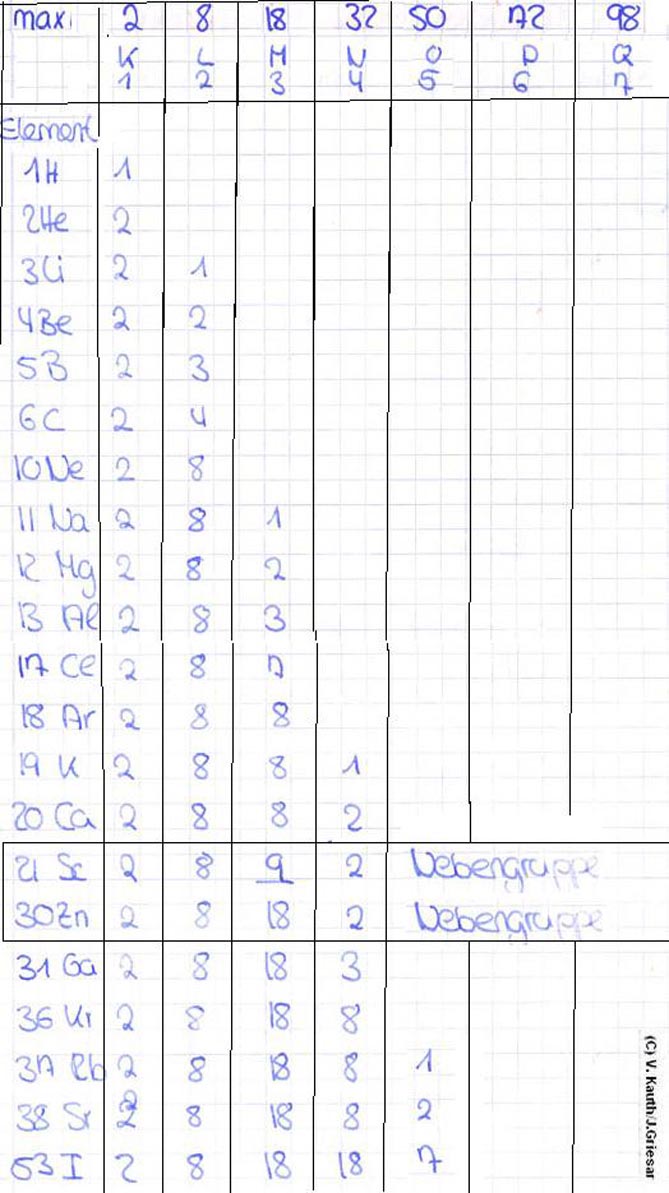 max. 2 8 18 32 50 72 98
K L M N O P Q
1 2 3 4 5 6 7
Element
1H 1
2He 2
3Li 2 1
4Be 2 2
5B 2 3
6C 2 4
10Ne 2 8
11 Na 2 8 1
12 Mg 2 8 2
13 Al 2 8 3
17 Cl 2 8 7
18 Ar 2 8 8
19 K 2 8 8 1
20 Ca 2 8 8 2
21 Sc 2 8 9 2 Nebengruppe
30Zn 2 8 18 2 Nebengruppe
31 Ga 2 8 18 3
36 Kr 2 8 18 8
37 Rb 2 8 18 8 1
38 Sr 2 8 18 8 2
53 I 2 8 18 18 7
(C) V. Kauth/J.Griesar